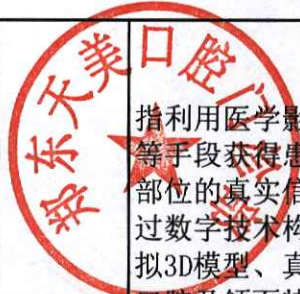 郑东天美口腔门诊部
指利用医学影
等手段获得患
部位的真实信
过数字技术构
拟3D模型、真